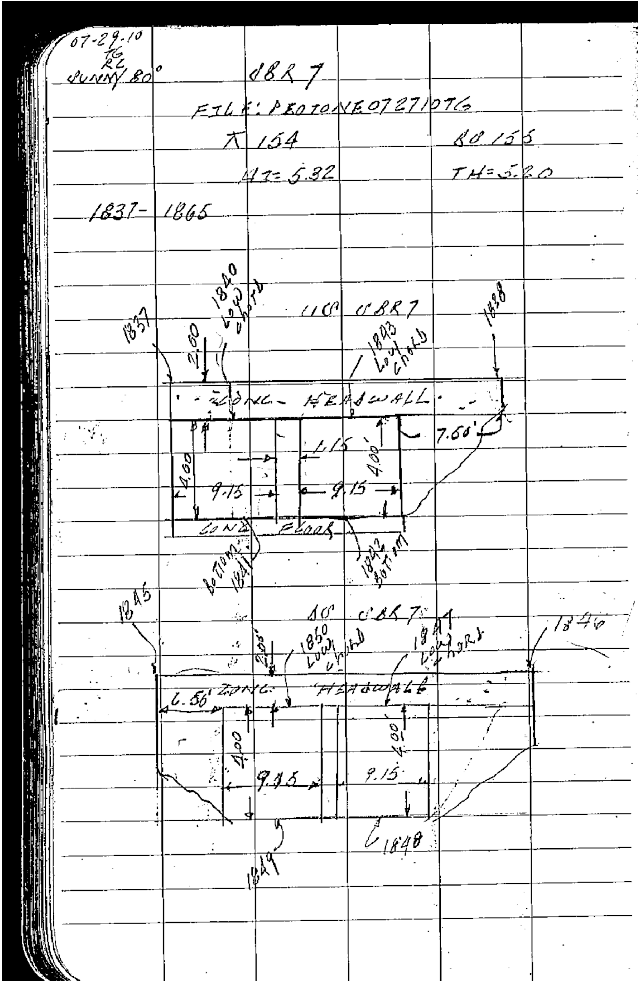 07-29-10
TG
RL
SUNNY 80°
SBR 7
FILE: PBOTONE072710TG
⊼ 154
BS 155
HI= 5.32
TH= 5.20
1837- 1865
U/S SBR7
1837
2.00
1840 Low Chord
1843 Low Chord
1838
CONC- HEADWALL
1.15
7.60'
4.00'
4.00'
9.15
9.15
CONC FLOOR
Bottom 1841
1842 Bottom
D/S SBR7
1845
2.00'
1850 Low Chord
Low Chord
1846
CONC. HEADWALL
6.50'
4.00
4.00'
9.15
9.15
1849
1848